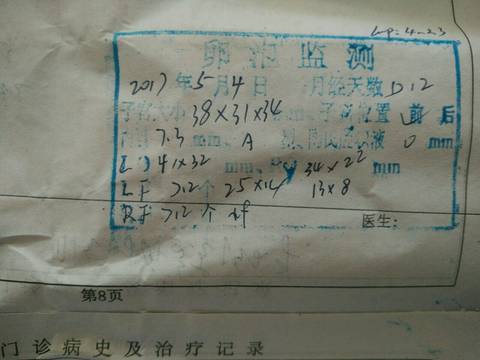 Lmp: 4-23
卵泡监测
2017年5月4日 月经天数D12
子宫大小38×31×34mm,子宫位置 前 后
内膜7.3mm, A 型,陶氏腔积液 0 mm
LO 41×32 mm, RO 34×22 mm
LF >12个 25×14 13×8
RF >12个
医生:
第8页
门诊病史及治疗记录